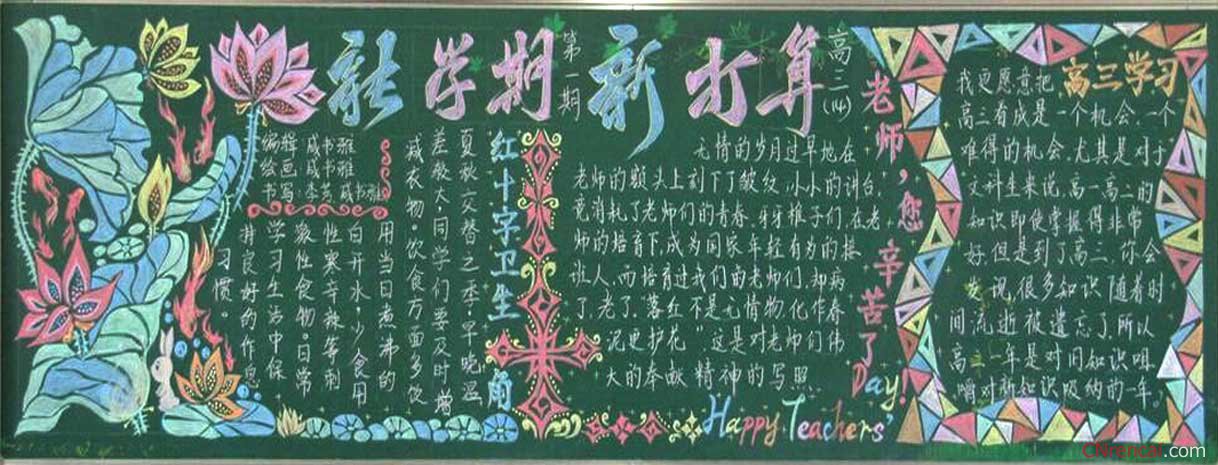 新学期
第一期
新打算
高三(14)
编辑 书雅
绘画 书雅
书写·李 书雅
红十字卫生角
夏秋交替之季,早晚温
差教大,同学们要及时增
减衣物。饮食方面多饮
用当日煮沸的
白开水,少食用
性寒辛辣等刺
激性食物。日常
学习生活中保
持良好的作息
习惯。
无情的岁月过早地在
老师的额头上刻下了皱纹,小小的讲台,
竟消札了老师们的青春。牙牙稚子们,在老
师的培育下,成为国家年轻有为的接
班人,而培育过我们的老师们,却病
了,老了。"落红不是无情物,化作春
泥更护花"这是对老师们伟
大的奉献精神的写照…
老师,您辛苦了
Happy Teachers' Day!
高三学习
我更愿意把
高三看成是一个机会,一个
难得的机会,尤其是对于
文科生来说,高一高二的
知识即使掌握得非常
好,但是到了高三,你会
发现,很多知识随着时
间流逝被遗忘了,所以
高三一年是对旧知识咀
嚼对新知识吸纳的一年。
CNrencai.com